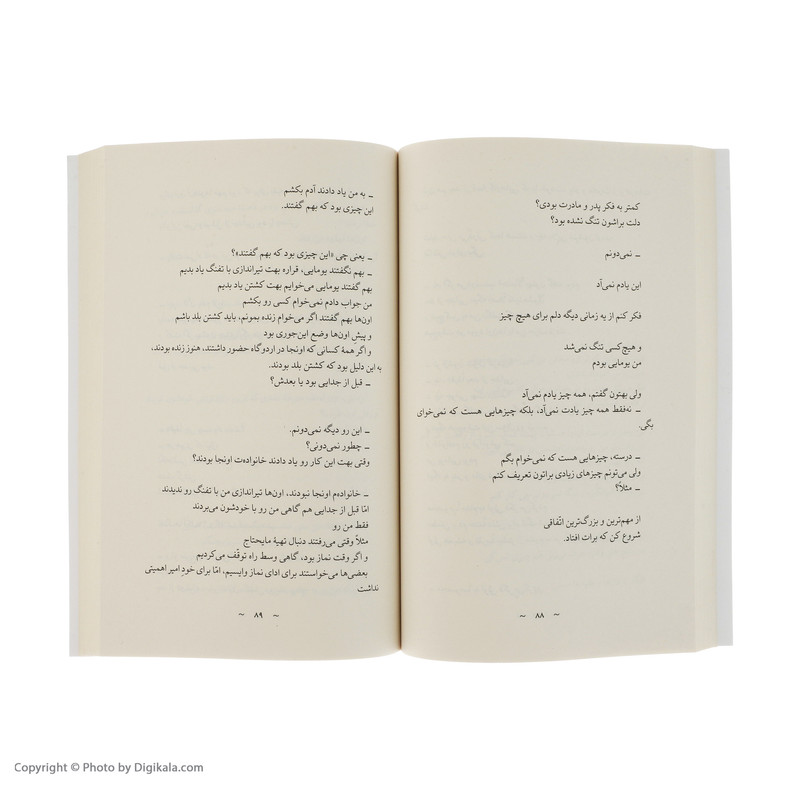 کمتر به فکر پدر و مادرت بودی؟
دلت براشون تنگ نشده بود؟
ـ نمی‌دونم
این یادم نمی‌آد
فکر کنم از یه زمانی دیگه دلم برای هیچ چیز
و هیچ‌کسی تنگ نمی‌شد
من یومایی بودم
ولی بهتون گفتم، همه چیز یادم نمی‌آد
ـ نه‌فقط همه چیز یادت نمی‌آد، بلکه چیزهایی هست که نمی‌خوای
بگی.
ـ درسته، چیزهایی هست که نمی‌خوام بگم
ولی می‌تونم چیزهای زیادی براتون تعریف کنم
ـ مثلاً؟
از مهم‌ترین و بزرگ‌ترین اتّفاقی
شروع کن که برات افتاد.
~ ۸۸ ~
ـ به من یاد دادند آدم بکشم
این چیزی بود که بهم گفتند.
ـ یعنی چی «این چیزی بود که بهم گفتند»؟
ـ بهم نگفتند یومایی، قراره بهت تیراندازی با تفنگ یاد بدیم
بهم گفتند یومایی می‌خوایم بهت کشتن یاد بدیم
من جواب دادم نمی‌خوام کسی رو بکشم
اون‌ها بهم گفتند اگر می‌خوام زنده بمونم، باید کشتن بلد باشم
و پیشِ اون‌ها وضع این‌جوری بود
و اگر همهٔ کسانی که اونجا در اردوگاه حضور داشتند، هنوز زنده بودند،
به این دلیل بود که کشتن بلد بودند.
ـ قبل از جدایی بود یا بعدش؟
ـ این رو دیگه نمی‌دونم.
ـ چطور نمی‌دونی؟
وقتی بهت این کار رو یاد دادند خانواده‌ت اونجا بودند؟
ـ خانواده‌م اونجا نبودند، اون‌ها تیراندازی من با تفنگ رو ندیدند
امّا قبل از جدایی هم گاهی من رو با خودشون می‌بردند
فقط من رو
مثلاً وقتی می‌رفتند دنبال تهیهٔ مایحتاج
و اگر وقت نماز بود، گاهی وسط راه توقّف می‌کردیم
بعضی‌ها می‌خواستند برای ادای نماز وایسیم، امّا برای خودِ امیر اهمیتی
نداشت
~ ۸۹ ~
Copyright © Photo by Digikala.com